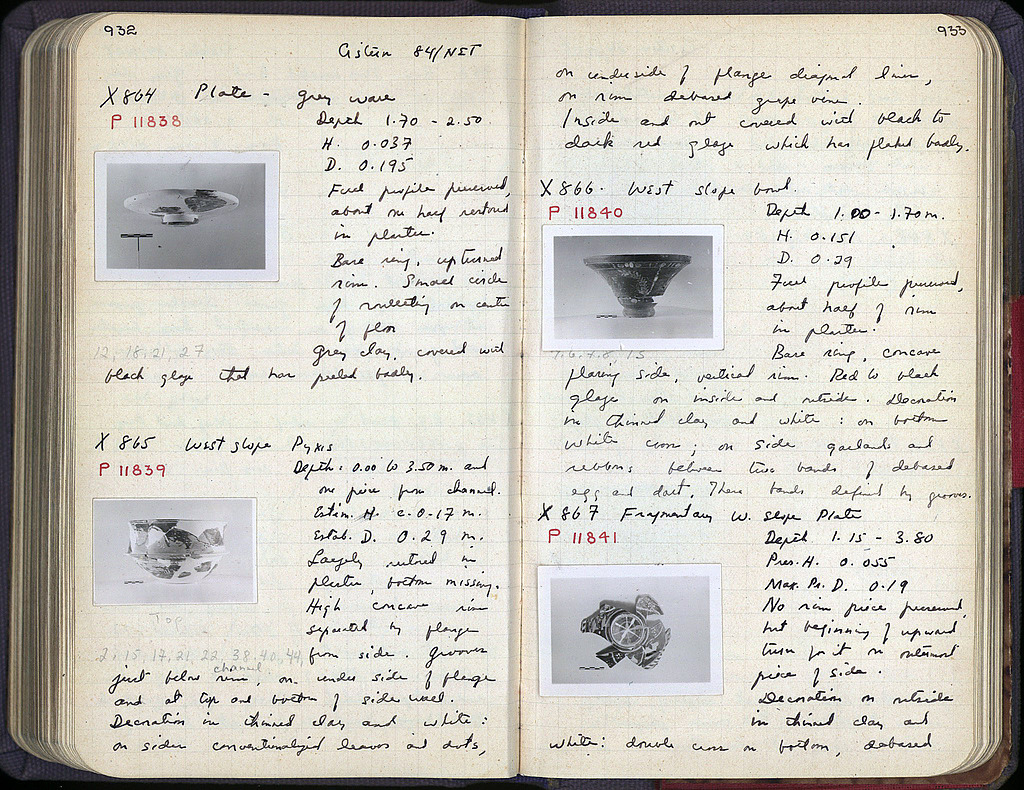 932
Cistern 84/ΝΣΤ
X 864 Plate - grey ware
P 11838
Depth 1.70 - 2.50
H. 0.037
D. 0.195
Full profile preserved,
about one half restored
in plaster.
Base ring, upturned
rim. Smooth circle
of rouletting on center
of floor
12, 18, 21, 27
Grey clay, covered with
black glaze that has peeled badly.
X 865 West slope Pyxis
P 11839
Depth: 0.00 to 3.50 m. and
one piece from channel.
Estim. H. c. 0.17 m.
Estab. D. 0.29 m.
Largely restored in
plaster, bottom missing.
High concave rim
separated by flange
Top
2, 15, 17, 21, 22, 38, 40, 44,
channel
from side. Grooves
just below rim, on under side of flange
and at top and bottom of side wall.
Decoration in thinned clay and white:
on sides conventionalized leaves and dots,
933
on underside of flange diagonal lines,
on rim debased grape vine.
Inside and out covered with black to
dark red glaze which has flaked badly.
X 866. West slope bowl.
P 11840
Depth 1.00 - 1.70 m.
H. 0.151
D. 0.29
Full profile preserved,
about half of rim
in plaster.
Base ring, concave
flaring side, vertical rim. Red to black
glaze on inside and outside. Decoration
in thinned clay and white: on bottom
white cross; on side garlands and
ribbons between two bands of debased
egg and dart. These bands defined by grooves.
X 867 Fragmentary W. Slope Plate
P 11841
Depth 1.15 - 3.80
Pres. H. 0.055
Max. Pr. D. 0.19
No rim piece preserved
but beginning of upward
turn for it on outermost
piece of side.
Decoration on outside
in thinned clay and
white: double cross on bottom, debased